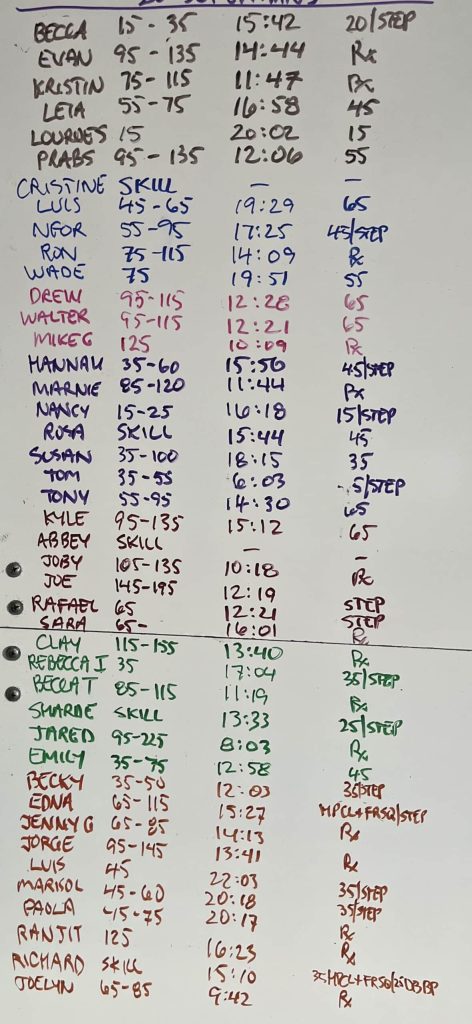 BECCA 15-35 15:42 20/STEP
EVAN 95-135 14:44 Rx
KRISTIN 75-115 11:47 Rx
LETA 55-75 16:58 45
LOURDES 15 20:02 15
PRABS 95-135 12:06 55
CRISTINE SKILL - -
LUIS 45-65 19:29 65
NFOR 55-95 17:25 45/STEP
RON 75-115 14:09 Rx
WADE 75 19:51 55
DREW 95-115 12:28 65
WALTER 95-115 12:21 65
MIKE G 125 10:09 Rx
HANNAH 35-60 15:50 45/STEP
MARNIE 85-120 11:44 Rx
NANCY 15-25 16:18 15/STEP
ROSA SKILL 15:44 45
SUSAN 35-100 18:15 35
TOM 35-55 6:03 5/STEP
TONY 55-95 14:30 65
KYLE 95-135 15:12 65
ABBEY SKILL - -
JOBY 105-135 10:18 Rx
JOE 145-195 12:19
RAFAEL 65 12:21 STEP
SARA 65- 16:01 STEP
CLAY 115-155 13:40 Rx
REBECCA I 35 17:04 Rx
BECCA T 85-115 11:19 35/STEP
SHARDE SKILL 13:33 Rx
JARED 95-225 8:03 25/STEP
EMILY 35-75 12:58 Rx
45
BECKY 35-50 12:03 35/STEP
EDNA 65-115 15:27 HPCL+FRSQ/STEP
JENNY G 65-85 14:13 Rx
JORGE 95-145 13:41
LUIS 45 22:03 Rx
MARISOL 45-60 20:18 35/STEP
PAOLA 45-75 20:17 35/STEP
RANJIT 125 16:23 Rx
RICHARD SKILL 15:10 Rx
JOELYN 65-85 9:42 35HPCL+FRSQ/25DBBP
Rx